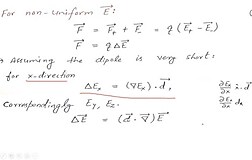 For non-uniform E⃗ :
F⃗ = F⃗₊ + F⃗₋ = q (E⃗₊ - E⃗₋)
F⃗ = q ΔE⃗
→ Assuming the dipole is very short:
for x-direction
ΔEₓ = (∇Eₓ) · d⃗,
∂Eₓ/∂x
∂Eₓ/∂x dₓ
Correspondingly Ey, Ez.
ΔE⃗ = (d⃗ · ∇⃗) E⃗